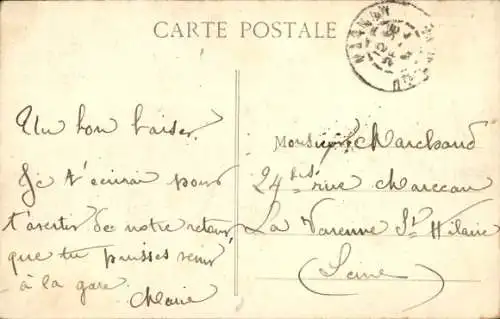 CARTE POSTALE
Un bon baiser.
Je t'écrirai pour
t'avertir de notre retour,
que tu puisses venir
à la gare.
Marie
Monsieur Marchand
24 bis rue Marceau
La Varenne St Hilaire
(Seine)